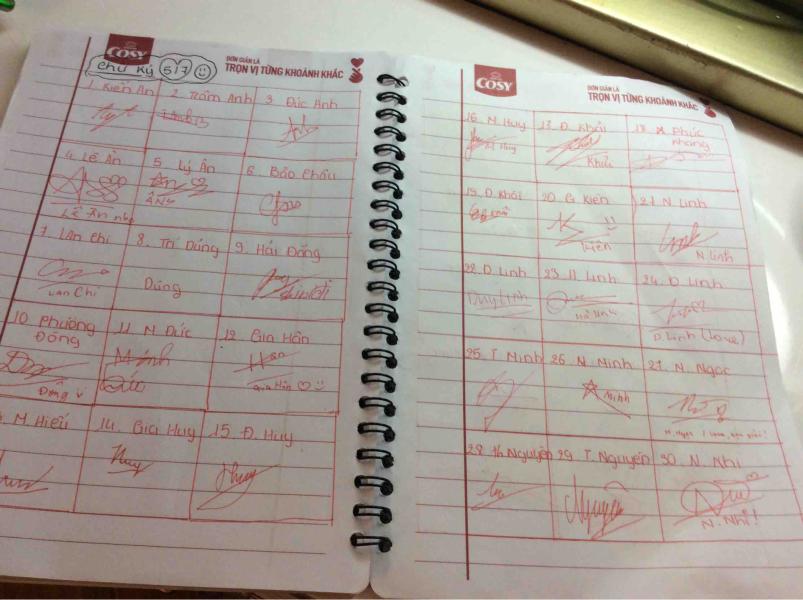 COSY
ĐƠN GIẢN LÀ
TRỌN VỊ TỪNG KHOẢNH KHẮC
Chữ Ký 5/7
1. Kiến An
2. Trâm Anh
3. Đức Anh
4. Lê Ân
5. Lý Ân
6. Bảo Châu
7. Lan Chi
Lan Chi
8. Trí Dũng
Dũng
9. Hải Đăng
10. Phương Đông
Đông
11. M. Đức
12. Gia Hân
Hân
Gia Hân
M. Hiếu
14. Gia Huy
Huy
15. Đ. Huy
Huy
COSY
ĐƠN GIẢN LÀ
TRỌN VỊ TỪNG KHOẢNH KHẮC
16. M. Huy
17. Đ. Khải
Khải
18. Phúc
Khang
19. Đ. Khôi
20. G. Kiên
Kiên
21. N. Linh
N Linh
22. D. Linh
Duy Linh
23. H. Linh
24. D. Linh
D. Linh (love)
25. T. Minh
26. N. Minh
Minh
27. N. Ngọc
28. Th. Nguyên
29. T. Nguyên
Nguyên
30. N. Nhi
N. Nhi!